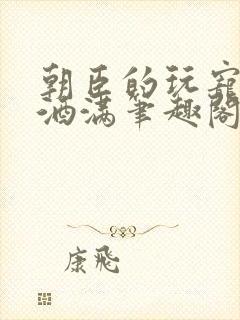 朝臣的玩宠
酒满笔趣阁
康飛